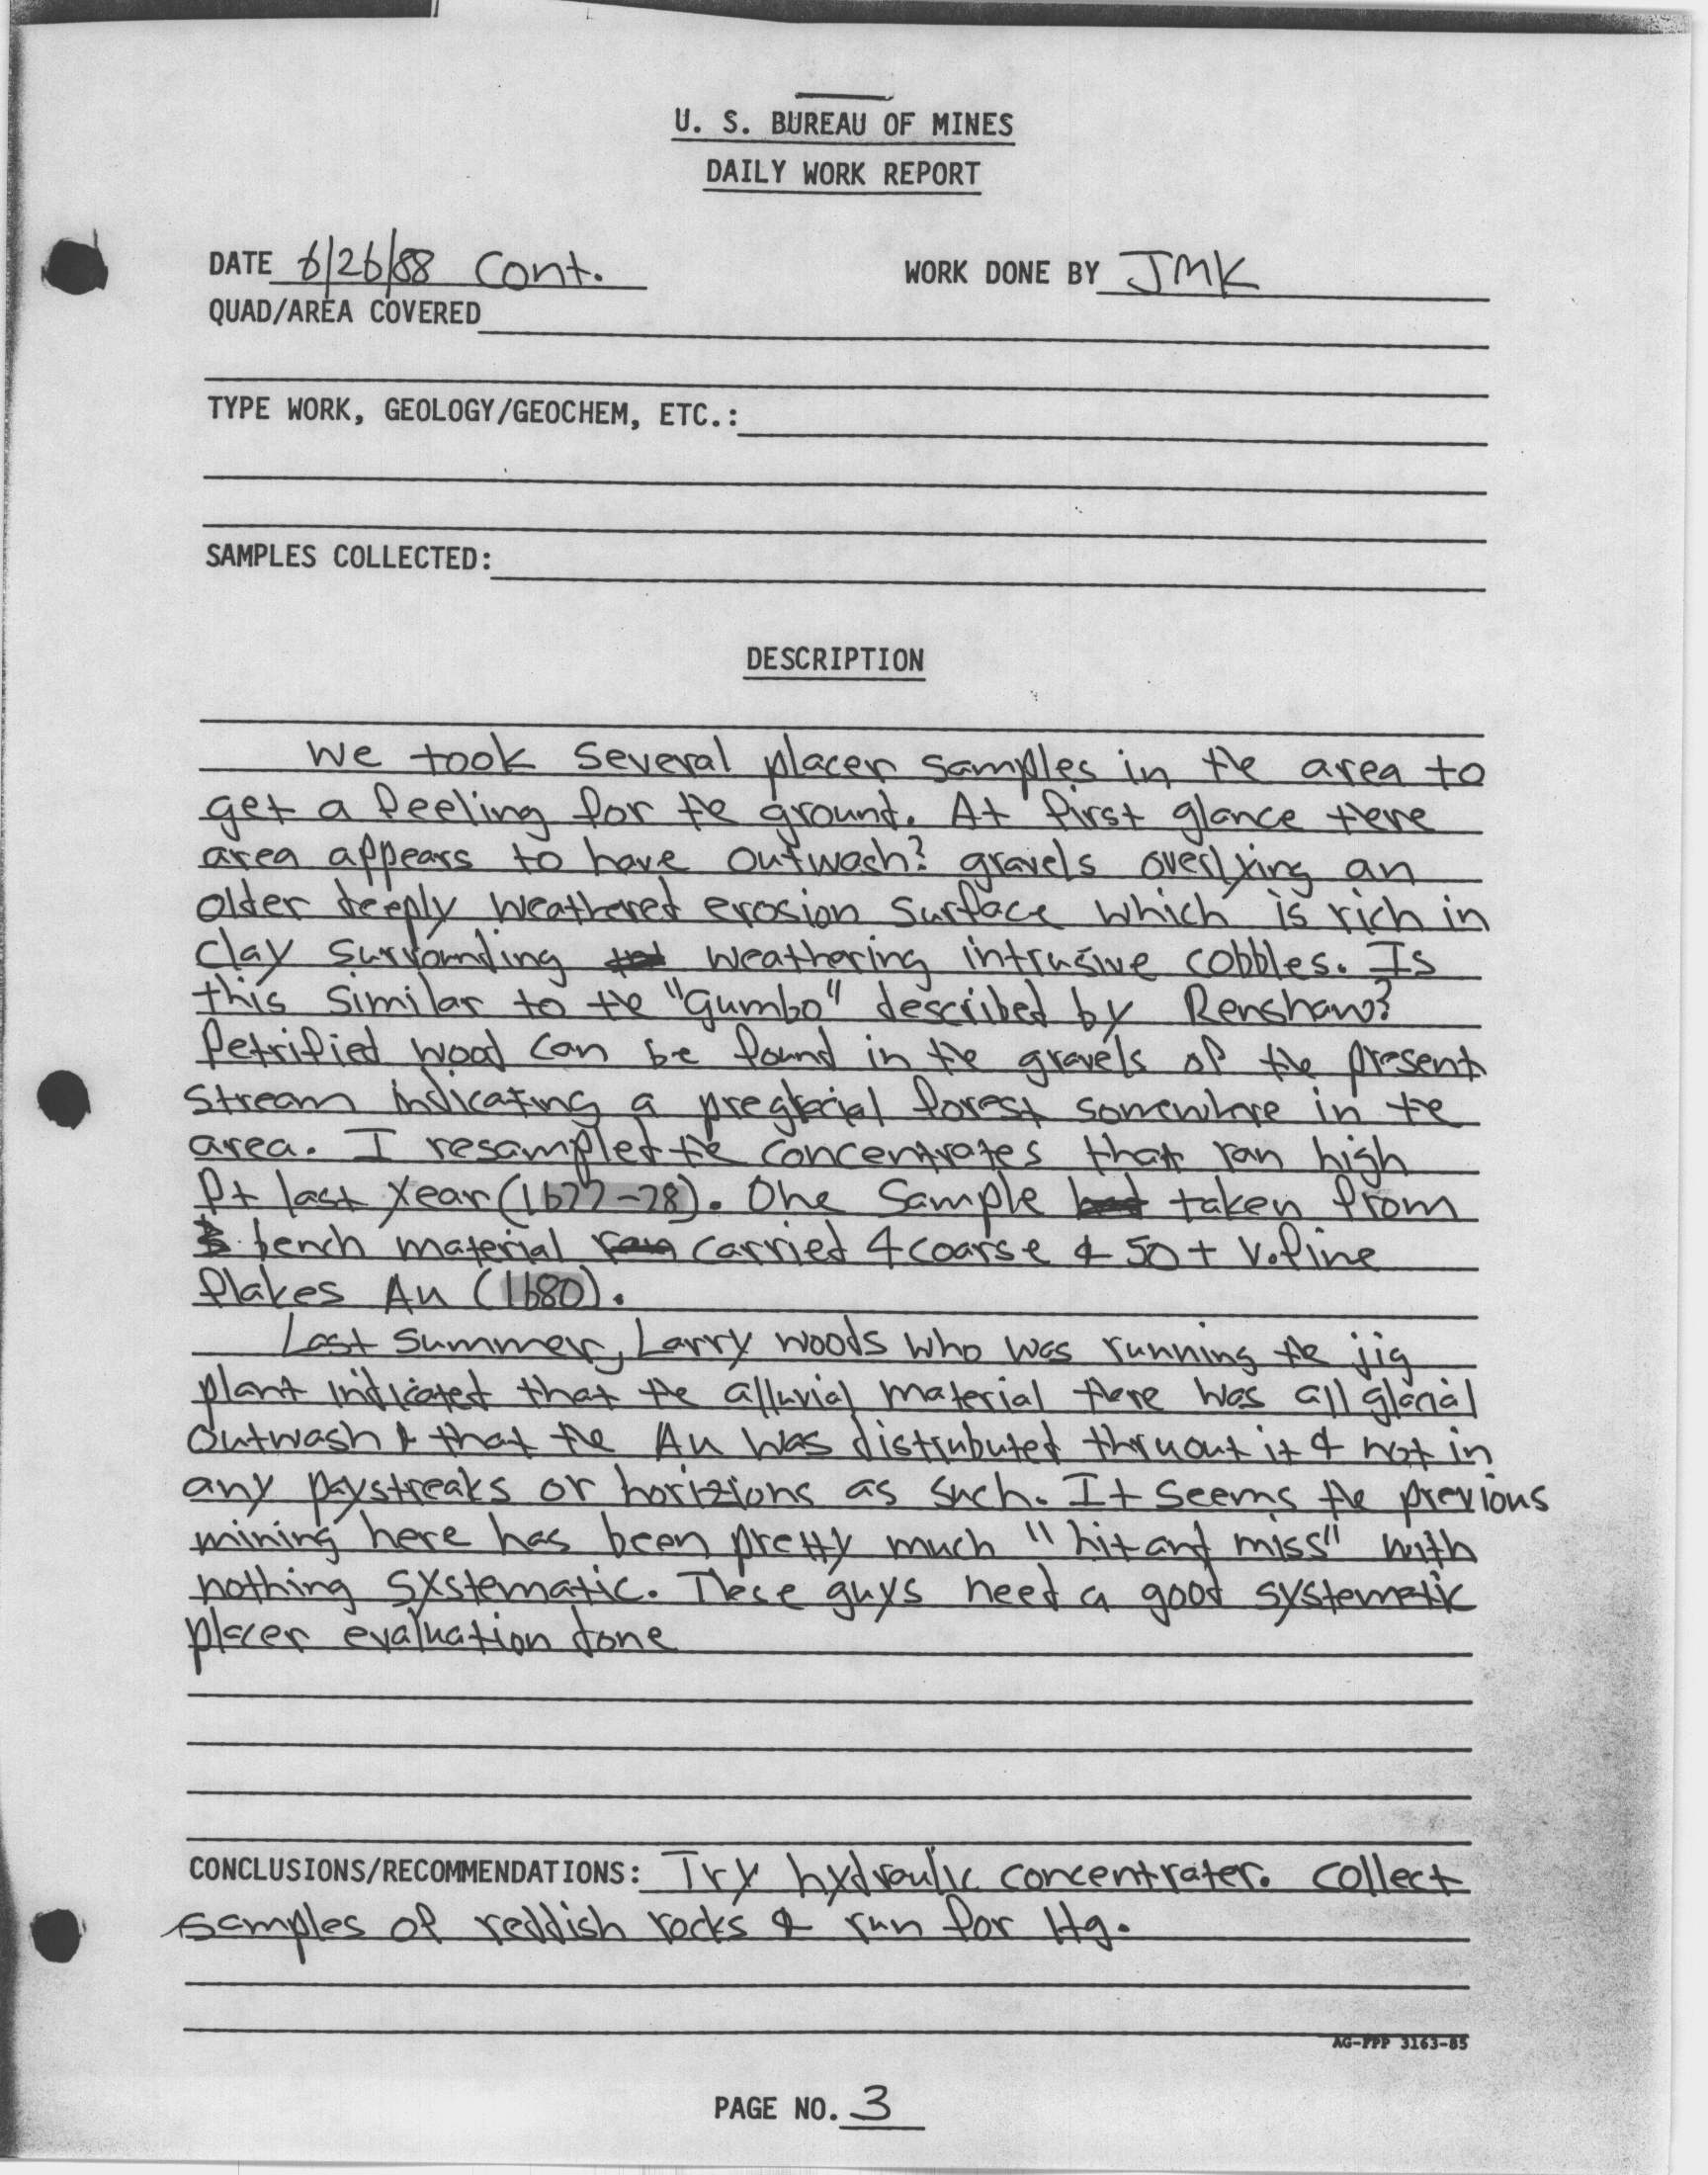 U. S. BUREAU OF MINES
DAILY WORK REPORT
DATE 6/26/88 Cont. WORK DONE BY JMK
QUAD/AREA COVERED
TYPE WORK, GEOLOGY/GEOCHEM, ETC.:
SAMPLES COLLECTED:
DESCRIPTION
We took several placer samples in the area to
get a feeling for the ground. At first glance there
area appears to have outwash? gravels overlying an
older deeply weathered erosion surface which is rich in
clay surrounding weathering intrusive cobbles. Is
this similar to the "Gumbo" described by Renshaw?
Petrified wood can be found in the gravels of the present
stream indicating a preglacial forest somewhere in the
area. I resampled the concentrates that ran high
Pt last year (1677-78). One sample had taken from
bench material ran carried 4 coarse & 50+ v. fine
flakes Au (1680).
Last summer, Larry Woods who was running the jig
plant indicated that the alluvial material there was all glacial
outwash & that the Au was distributed thruout it & not in
any paystreaks or horizions as such. It seems the previous
mining here has been pretty much "hit and miss" with
nothing systematic. These guys need a good systematic
placer evaluation done
CONCLUSIONS/RECOMMENDATIONS: Try hydraulic concentrater. Collect
samples of reddish rocks & run for Hg.
AG-FPP 3163-85
PAGE NO. 3